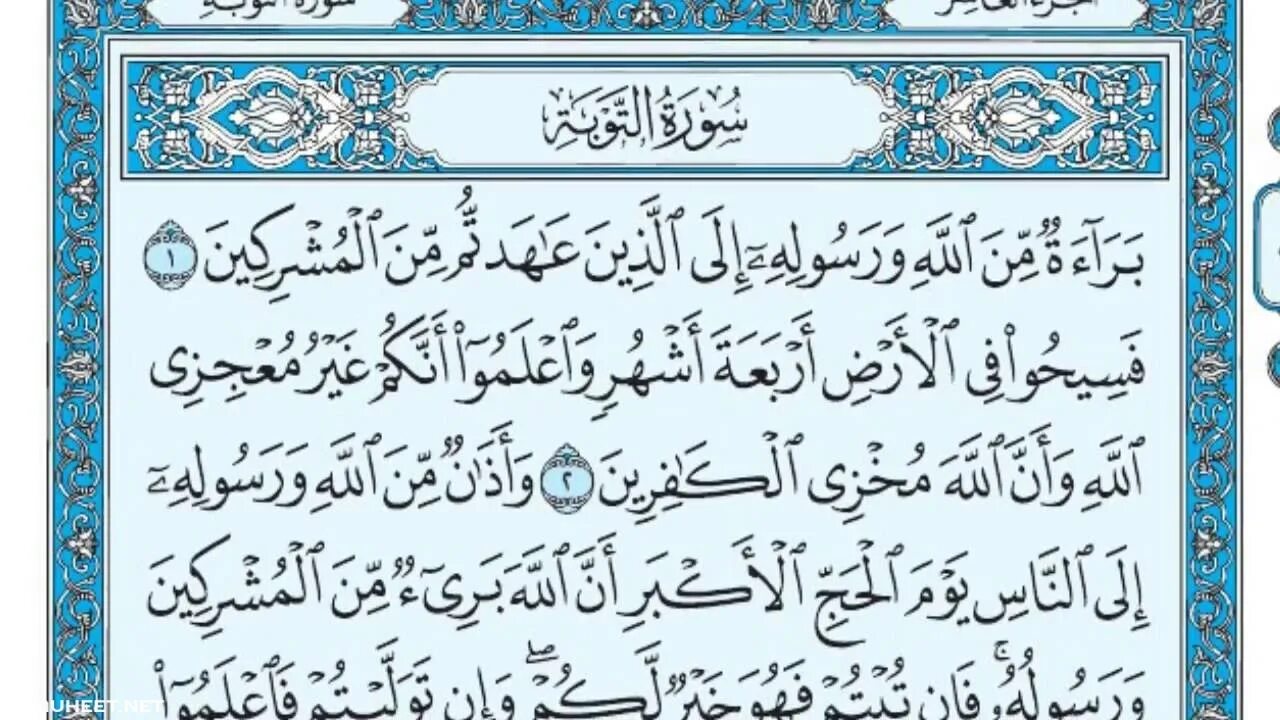 الجزء العاشر
سورة التوبة
سُورَةُ التَّوۡبَةِ
بَرَآءَةٞ مِّنَ ٱللَّهِ وَرَسُولِهِۦٓ إِلَى ٱلَّذِينَ عَٰهَدتُّم مِّنَ ٱلۡمُشۡرِكِينَ ١
فَسِيحُواْ فِي ٱلۡأَرۡضِ أَرۡبَعَةَ أَشۡهُرٖ وَٱعۡلَمُوٓاْ أَنَّكُمۡ غَيۡرُ مُعۡجِزِي
ٱللَّهِ وَأَنَّ ٱللَّهَ مُخۡزِي ٱلۡكَٰفِرِينَ ٢ وَأَذَٰنٞ مِّنَ ٱللَّهِ وَرَسُولِهِۦٓ
إِلَى ٱلنَّاسِ يَوۡمَ ٱلۡحَجِّ ٱلۡأَكۡبَرِ أَنَّ ٱللَّهَ بَرِيٓءٞ مِّنَ ٱلۡمُشۡرِكِينَ
وَرَسُولُهُۥۚ فَإِن تُبۡتُمۡ فَهُوَ خَيۡرٞ لَّكُمۡۖ وَإِن تَوَلَّيۡتُمۡ فَٱعۡلَمُوٓاْ